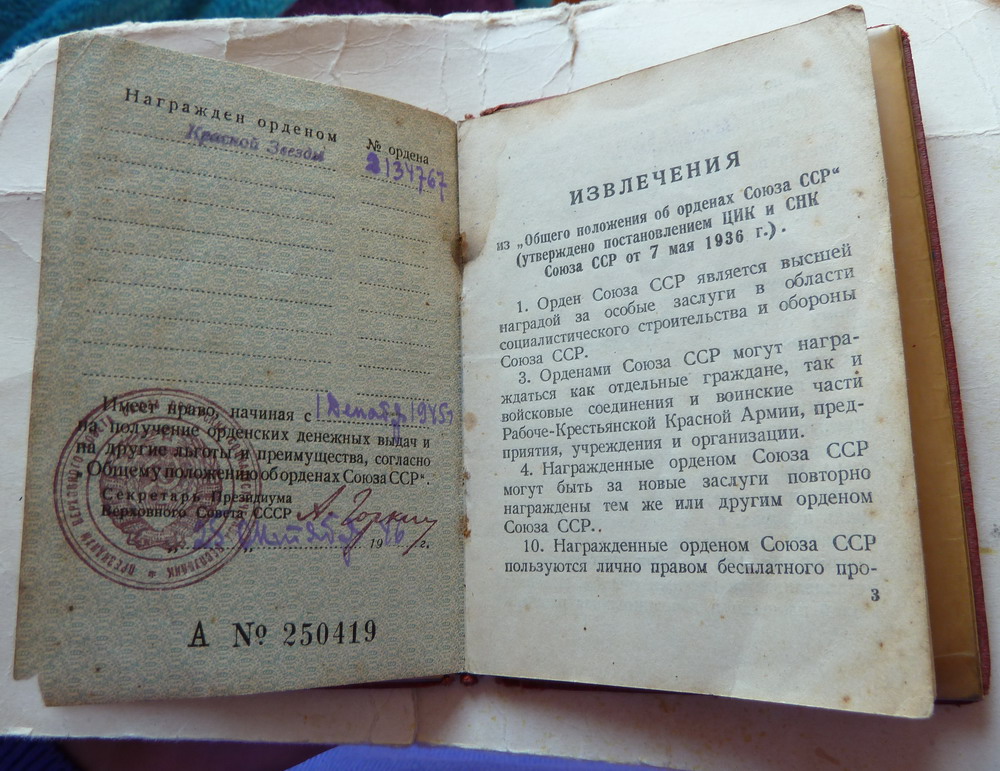 Награжден орденом
№ ордена
Красной Звезды
2134767
Имеет право, начиная с 1 1945
на получение орденских денежных выдач и
на другие льготы и преимущества, согласно
„Общему положению об орденах Союза ССР“.
Секретарь Президиума
Верховного Совета СССР А. Горкин
25 19 46 г.
А № 250419
ИЗВЛЕЧЕНИЯ
из „Общего положения об орденах Союза ССР“
(утверждено постановлением ЦИК и СНК
Союза ССР от 7 мая 1936 г.).
1. Орден Союза ССР является высшей
наградой за особые заслуги в области
социалистического строительства и обороны
Союза ССР.
3. Орденами Союза ССР могут награ-
ждаться как отдельные граждане, так и
войсковые соединения и воинские части
Рабоче-Крестьянской Красной Армии, пред-
приятия, учреждения и организации.
4. Награжденные орденом Союза ССР
могут быть за новые заслуги повторно
награждены тем же или другим орденом
Союза ССР..
10. Награжденные орденом Союза ССР
пользуются лично правом бесплатного про-
3